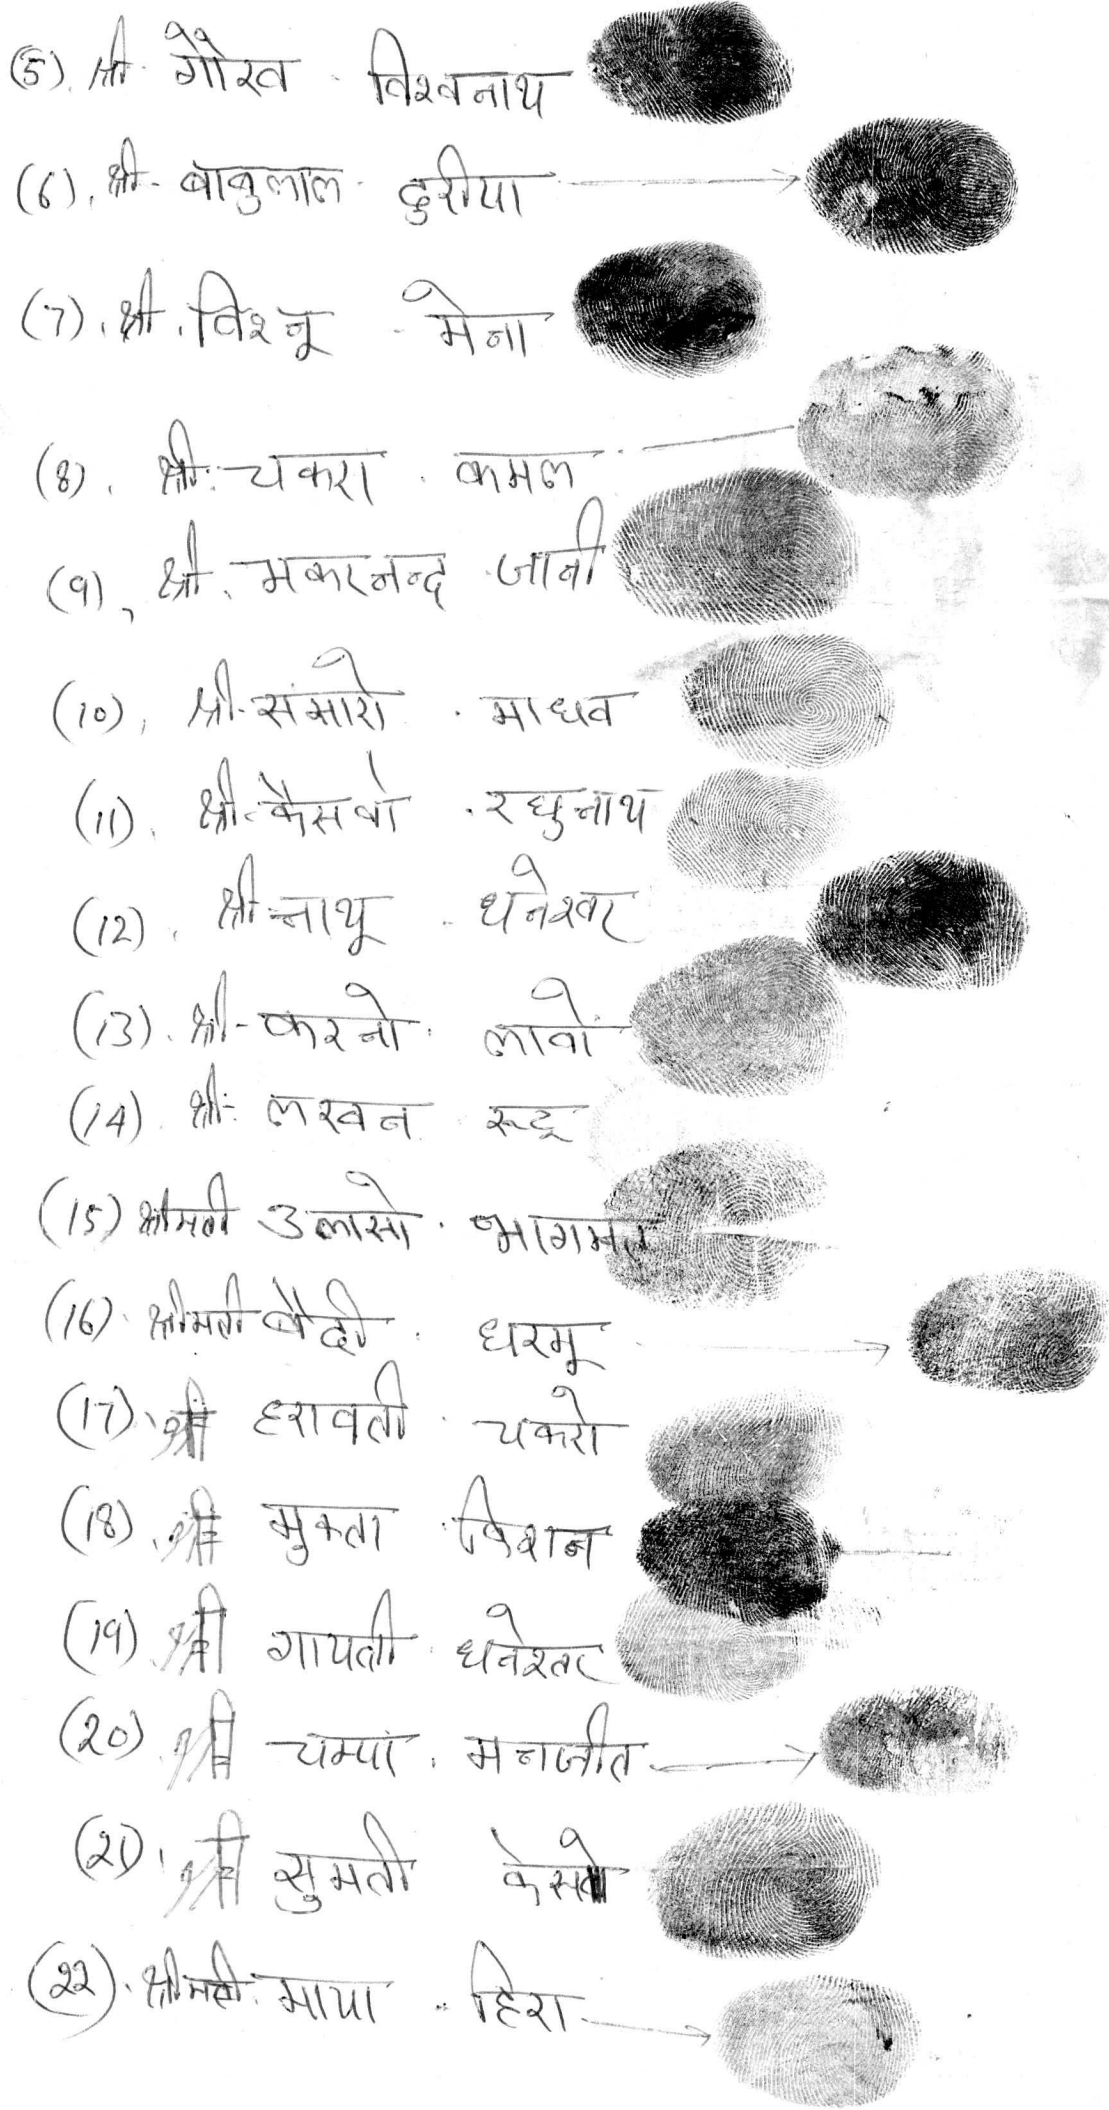 (5). श्री. गौरव . विश्वनाथ
(6). श्री. बाबुलाल . दुरीया
(7). श्री. विश्नू . मेना
(8). श्री. चकरा . कमल
(9). श्री. मकरनन्द . जानी
(10). श्री. संमारो . माधव
(11). श्री. कैसवो . रघुनाथ
(12). श्री. नाथू . धनेश्वर
(13). श्री - करनो . लावो
(14). श्री. लखन रूदू
(15) श्रीमती उलासो . भागमल
(16). श्रीमती बैदी . धरमू
(17). श्री हरावती . चकरो
(18). श्री मुक्ता . किशन
(19). श्री गायती . धनेश्वर
(20). श्री चम्पा . मनजीत
(21). श्री सुमती केसवो
(22). श्रीमती. माया . हिरा